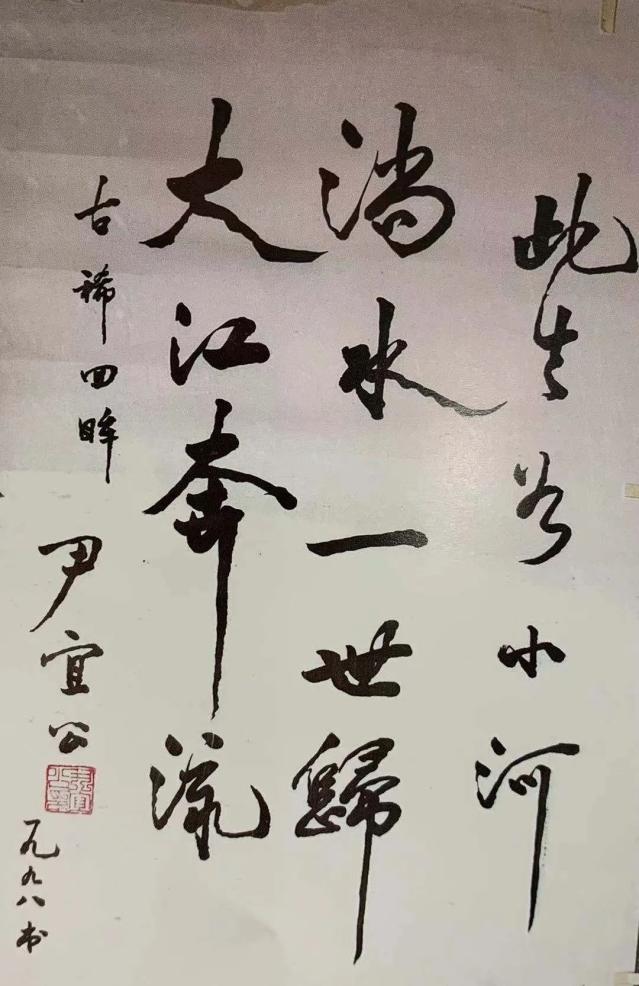 此生若小河
淌水一世歸
大江奔流
古稀回眸
尹宜公
一九九八书